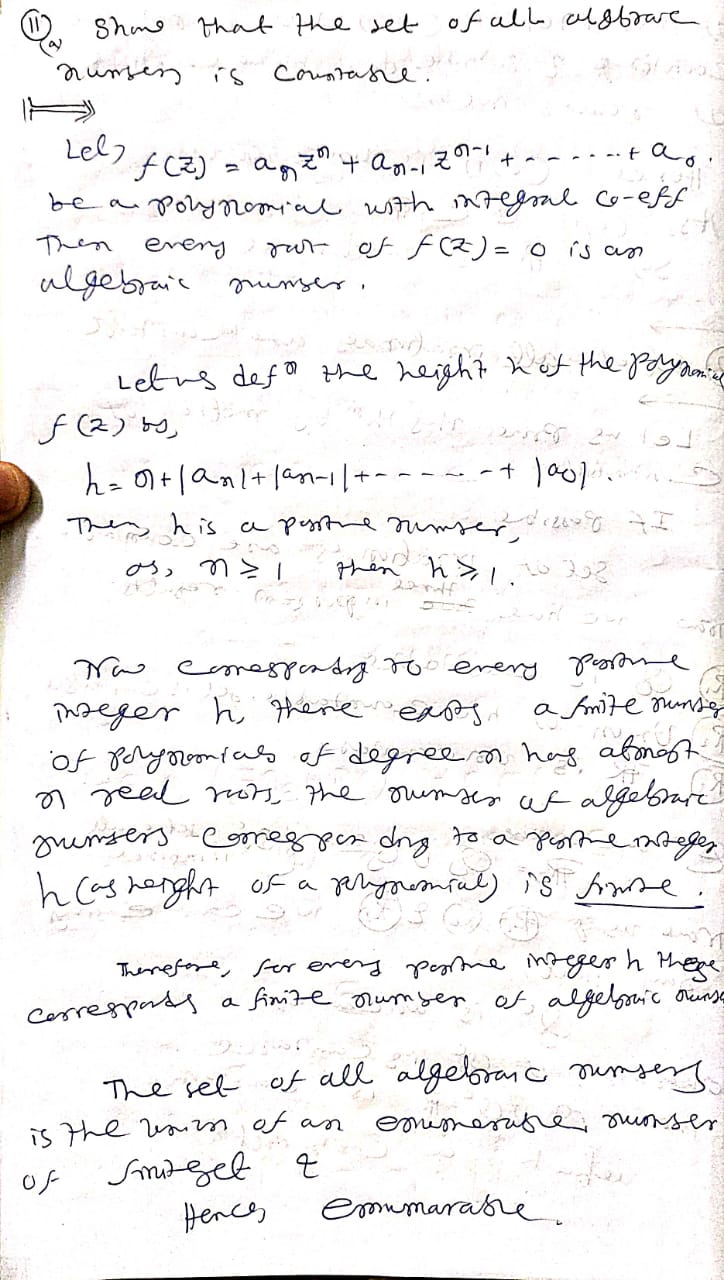 (11) (a) Show that the set of all algebraic
numbers is countable.
Let, f(z) = aₙzⁿ + aₙ₋₁zⁿ⁻¹ + ------ + a₀.
be a polynomial with integral co-eff
Then every root of f(z) = 0 is an
algebraic number.
Let us defⁿ the height h of the polynomial
f(z) by,
h = n + |an| + |an-1| + ------ + |a0|.
Then, h is a positive number,
as, n ≥ 1 then h ≥ 1.
Now corresponding to every positive
integer h, there exists a finite number
of polynomials of degree n has atmost
n real roots, the number of algebraic
numbers corresponding to a positive integer
h (as height of a polynomial) is finite.
Therefore, for every positive integer h there
corresponds a finite number of algebraic numbe
The set of all algebraic numbers
is the union of an enumerable number
of finite set &
Hence, enumarable.